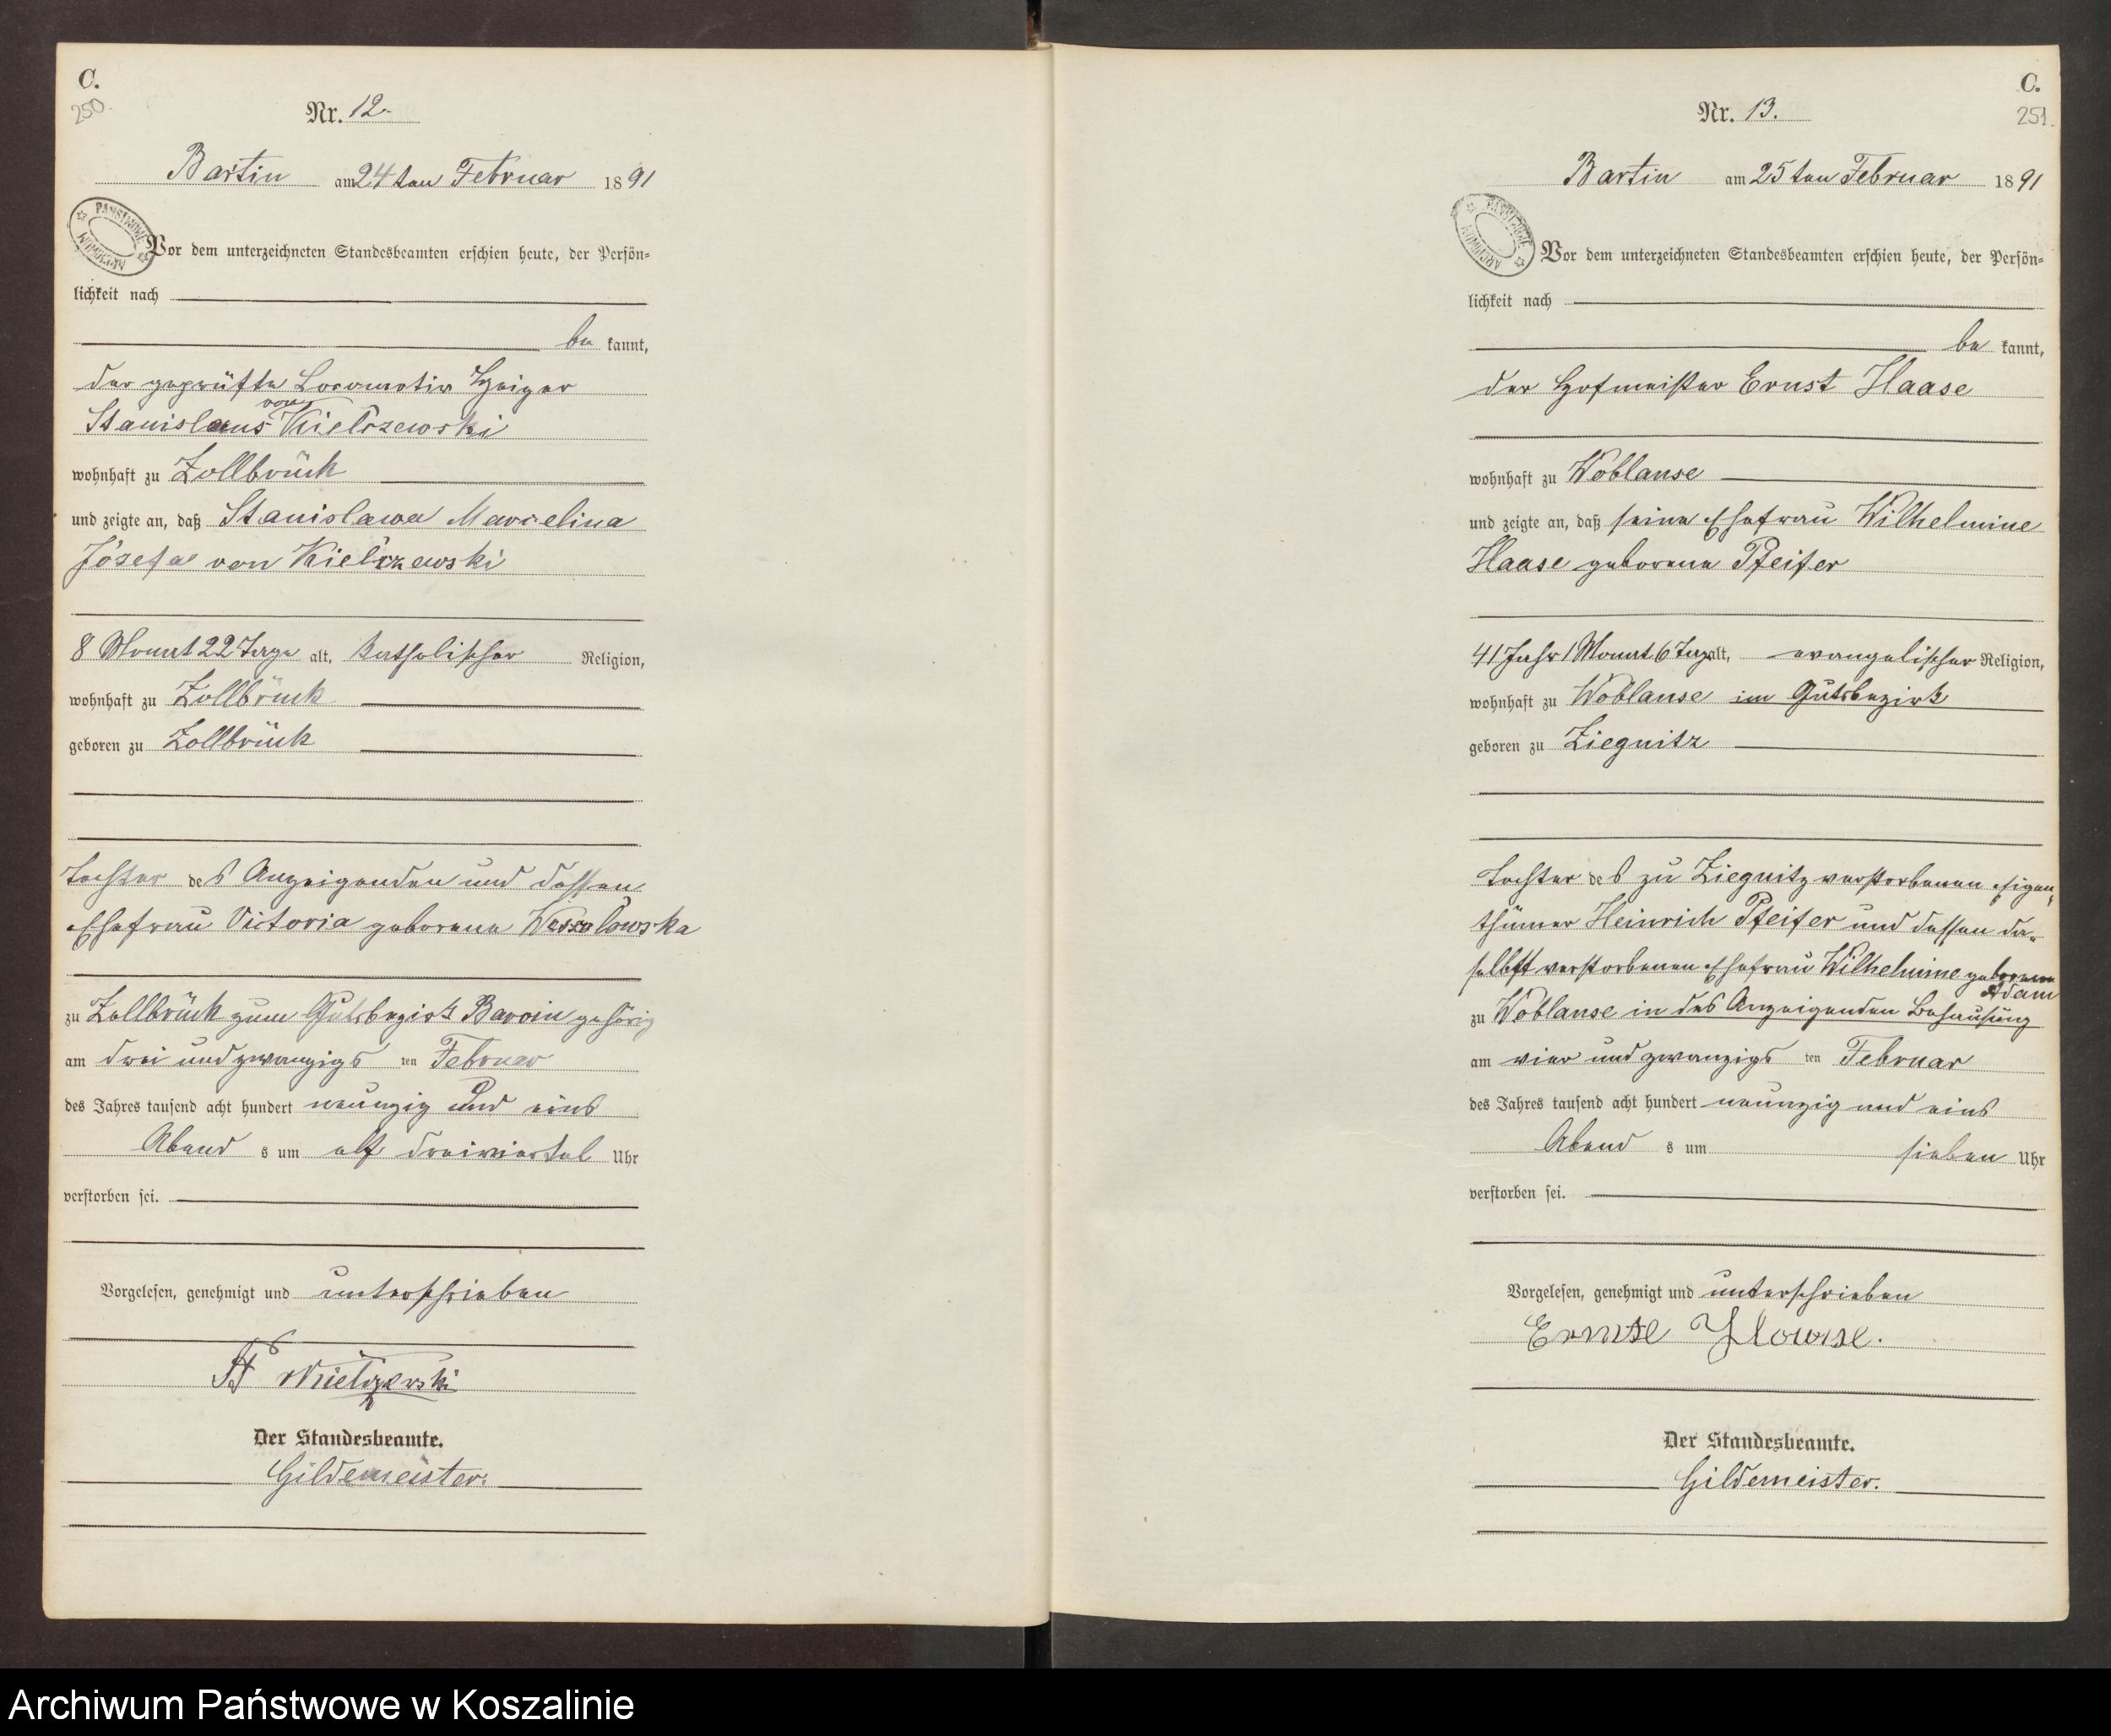 C.
250.
Nr. 12.
Bartin am 24ten Februar 1891
PAŃSTWOWE ARCHIWUM
Vor dem unterzeichneten Standesbeamten erschien heute, der Persön-
lichkeit nach
be kannt,
der geprüfte Locomotiv Heizer
von
Stanislaus Kiełczewski
wohnhaft zu Zollbrück
und zeigte an, daß Stanislawa Marcelina
Józefa von Kiełczewski
8 Monat 22 Tage alt, katholischer Religion,
wohnhaft zu Zollbrück
geboren zu Zollbrück
Tochter des Anzeigenden und dessen
Ehefrau Victoria geborene
zu Zollbrück zum Gutsbezirk gehörig
am drei und zwanzigs ten Februar
des Jahres tausend acht hundert neunzig und eins
Abend s um elf dreiviertel Uhr
verstorben sei.
Vorgelesen, genehmigt und unterschrieben
St Kiełczewski
Der Standesbeamte.
Gildemeister.
C.
251.
Nr. 13.
Bartin am 25ten Februar 1891
PAŃSTWOWE ARCHIWUM
Vor dem unterzeichneten Standesbeamten erschien heute, der Persön-
lichkeit nach
be kannt,
der Hofmeister Ernst Haase
wohnhaft zu Woblanse
und zeigte an, daß seine Ehefrau Wilhelmine
Haase geborene Pfeifer
41 Jahr 1 Monat 6 Tag alt, evangelischer Religion,
wohnhaft zu Woblanse im Gutsbezirk
geboren zu Ziegnitz
Tochter des zu Ziegnitz verstorbenen Eigen-
thümer Heinrich Pfeifer und dessen da-
selbst verstorbenen Ehefrau Wilhelmine geborene
Adam
zu Woblanse in des Anzeigenden Behausung
am vier und zwanzigs ten Februar
des Jahres tausend acht hundert neunzig und eins
Abend s um sieben Uhr
verstorben sei.
Vorgelesen, genehmigt und unterschrieben
Ernste Haase.
Der Standesbeamte.
Gildemeister.
Archiwum Państwowe w Koszalinie